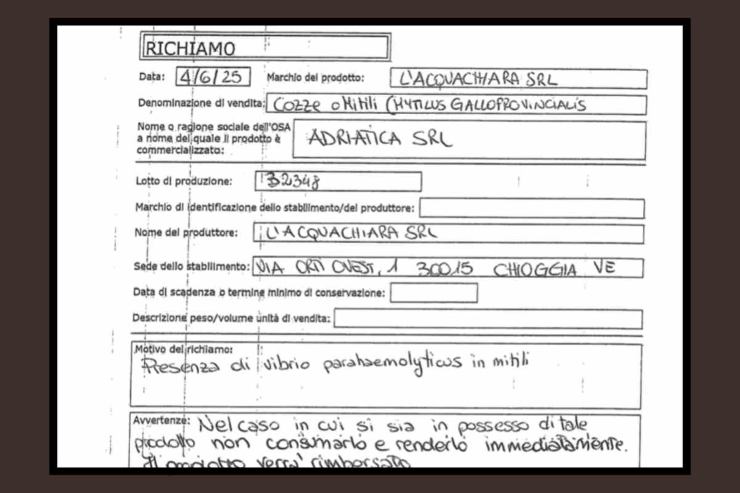 RICHIAMO
Data: 4/6/25 Marchio del prodotto: L'ACQUACHIARA SRL
Denominazione di vendita: COZZE o MITILI (MYTILUS GALLOPROVINCIALIS
Nome o ragione sociale dell'OSA
a nome del quale il prodotto è
commercializzato: ADRIATICA SRL
Lotto di produzione: 32348
Marchio di identificazione dello stabilimento/del produttore:
Nome del produttore: L'ACQUACHIARA SRL
Sede dello stabilimento: VIA ORTI OVEST, 1 30015 CHIOGGIA VE
Data di scadenza o termine minimo di conservazione:
Descrizione peso/volume unità di vendita:
Motivo del richiamo:
Presenza di vibrio parahaemolyticus in mitili
Avvertenze: Nel caso in cui si sia in possesso di tale
prodotto non consumarlo e renderlo immediatamente.
Il prodotto verrà rimborsato